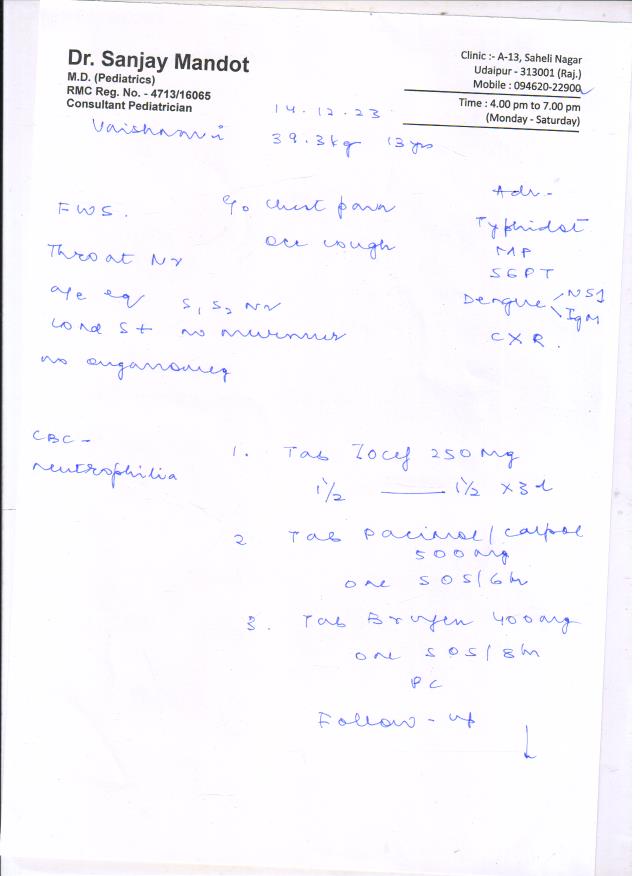 Dr. Sanjay Mandot
M.D. (Pediatrics)
RMC Reg. No. - 4713/16065
Consultant Pediatrician
Clinic :- A-13, Saheli Nagar
Udaipur - 313001 (Raj.)
Mobile : 094620-22900
Time : 4.00 pm to 7.00 pm
(Monday - Saturday)
14.12.23
Vaishnavi
39.3kg 13 yrs
FWS.
c/o chest pain
occ cough
Throat Nr
a/e eq S1 S2 Nr
no murmur
no organomeg
Adv -
Typhidot
MP
SGPT
Dengue NS1
IgM
CXR.
CBC -
neutrophilia
1. Tab Zocef 250 mg
1½ — 1½ x 3d
2 Tab Pacimol / calpol
500mg
one SOS/6h
3. Tab Brufen 400mg
one SOS/8h
PC
Follow-up